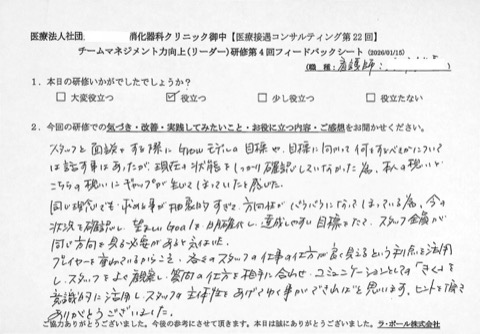 医療法人社団 消化器科クリニック御中【医療接遇コンサルティング第22回】
チームマネジメント力向上(リーダー)研修第4回フィードバックシート (2026/01/15)
(職種:看護師:
1.本日の研修いかがでしたでしょうか?
□大変役立つ ☑役立つ □少し役立つ □役立たない
2.今回の研修での気づき・改善・実践してみたいこと・お役に立つ内容・ご感想をお聞かせください。
スタッフと面談をする際にGrowモデルの目標や、目標に向けて何をすべきかについて
は話す事はあったが、現在の状態をしっかり確認していなかった為、本人の視いと
こちらの視いにギャップが生じてしまっていたと感じた。
同じ理想でも、求める事が抽象的すぎて、方向性がバラバラになってしまっている為、今の
状況を確認し、望ましいGoalを明確化し、達成しやすい目標をたて、スタッフ全員が
同じ方向を見る必要があると気付いた。
プレイヤーを兼ねているからこそ、各々のスタッフの仕事の仕方が良く見えるという利点を活用
し、スタッフをよく観察し、質問の仕方を相手に合わせ、コミュニケーションとしての"きく"を
意識的に活用し、スタッフの主体性をあげてゆく事ができればと思います。ヒントを頂き
ありがとうございました。
ご協力ありがとうございました。今後の参考にさせて頂きます。本日は誠にありがとうございました。 ラ・ポール株式会社